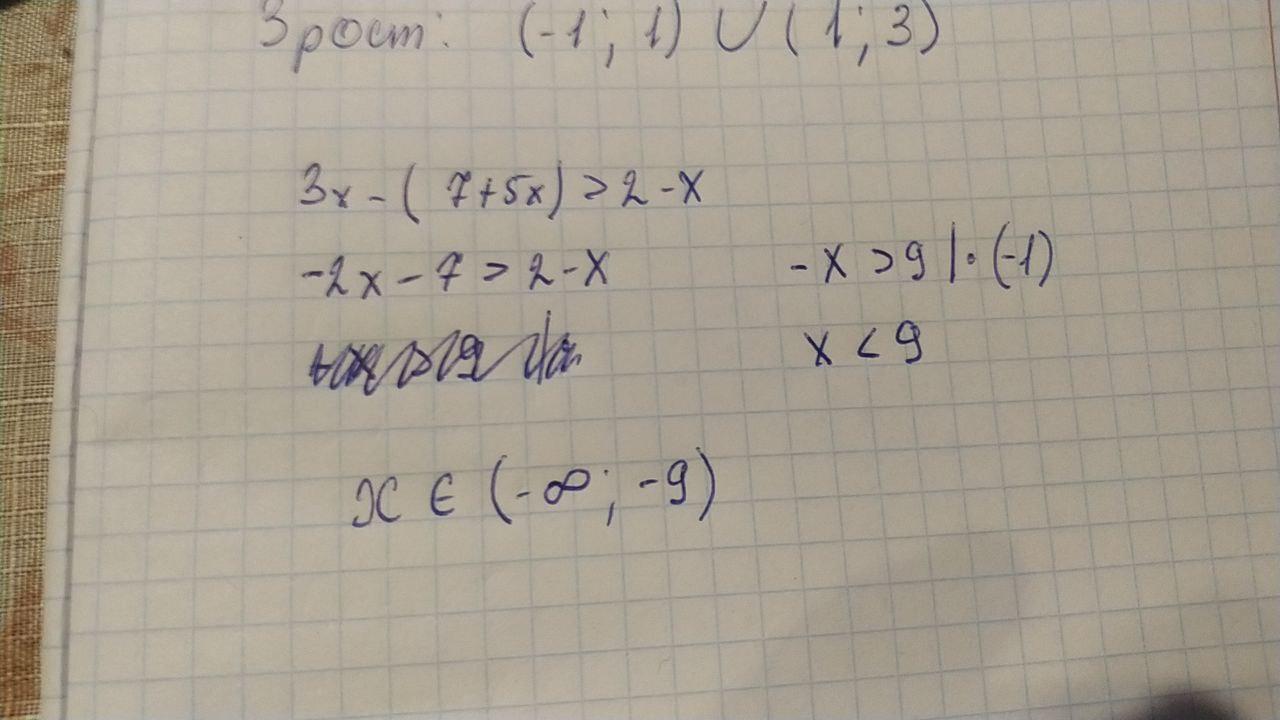 Зрост: (-1; 1) ∪ (1; 3)
3x - (7+5x) > 2 - x
-2x - 7 > 2 - x
-x > 9 | · (-1)
x < 9
x ∈ (-∞; -9)